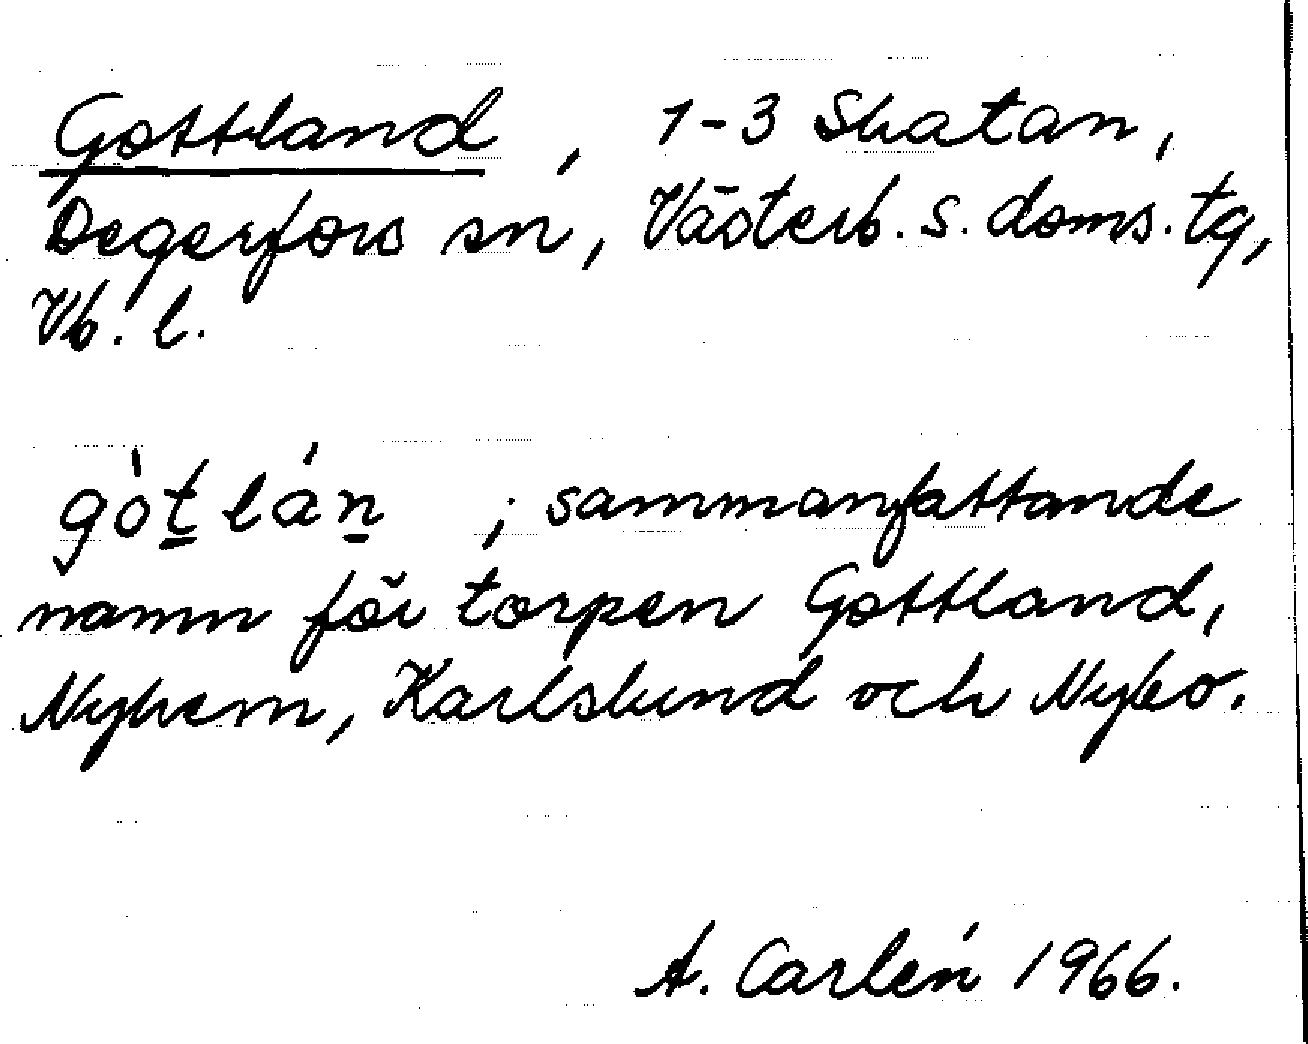 Gottland, 1-3 Skatan,
Degerfors sn, Västerb. s. doms. tg,
Vb. l.
gòt̲lán̲ ; sammanfattande
namn för torpen Gottland,
Nyhem, Karlslund och Nybo.
A. Carlén 1966.